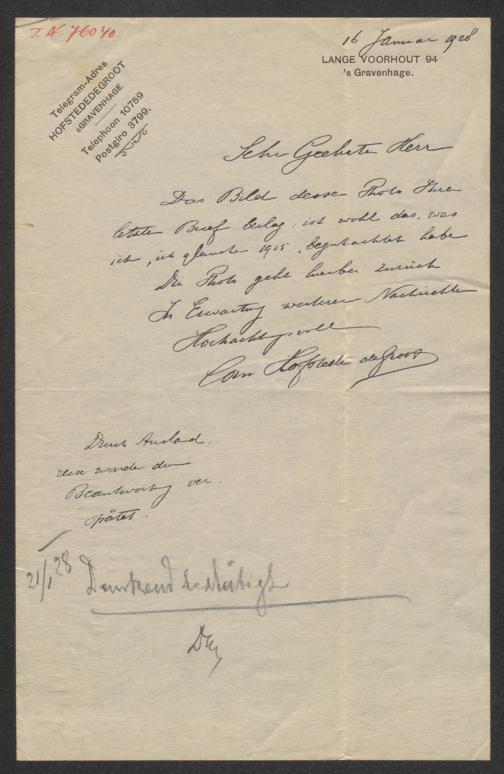 T. N° 76040
16 Januar 1928
LANGE VOORHOUT 94
's Gravenhage.
Telegram-Adres
HOFSTEDEDEGROOT
sGRAVENHAGE
Telephoon 10759
Postgiro 3799.
Sehr Geehrter Herr
Das Bild dessen Photo Ihre
letzte Brief beilag, ist wohl das, was
ich, ich glaube 1915, begutachtet habe
Die Photo geht hierbei zurück
In Erwartung weiterer Nachrichten
Hochachtungsvoll
Corn Hofstede de Groot
Durch Ausland
reise wurde die
Beantwortung ver
spätet.
21/1 28 Dankend bestätigt